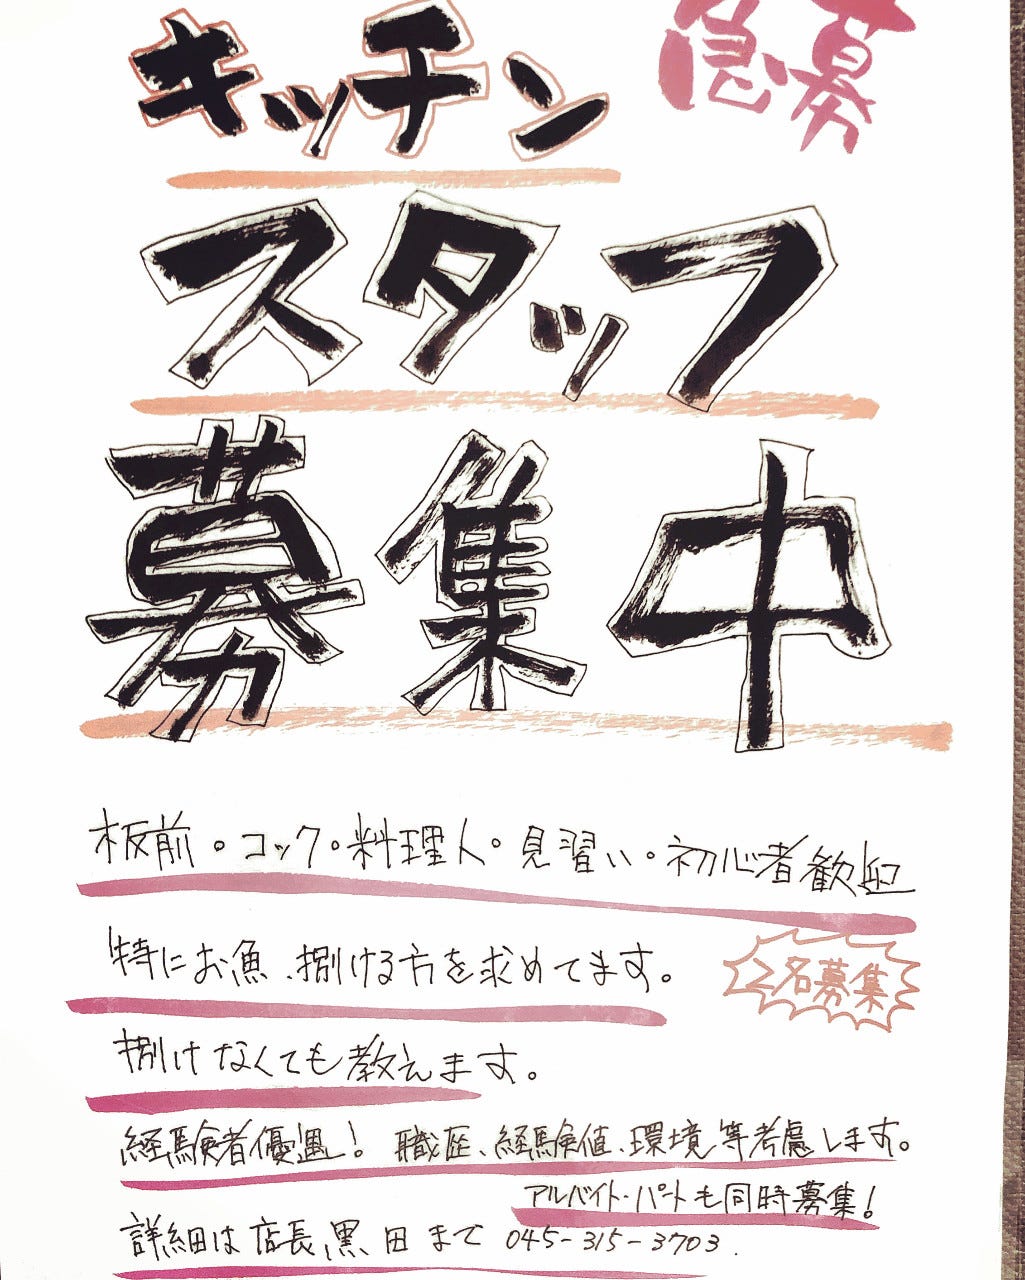 急募
キッチン
スタッフ
募集中
板前。コック。料理人。見習い。初心者歓迎
特にお魚、捌ける方を求めてます。
2名募集
捌けなくても教えます。
経験者優遇! 職歴、経験値、環境等考慮します。
アルバイト・パートも同時募集!
詳細は店長、黒田まで 045-315-3703.